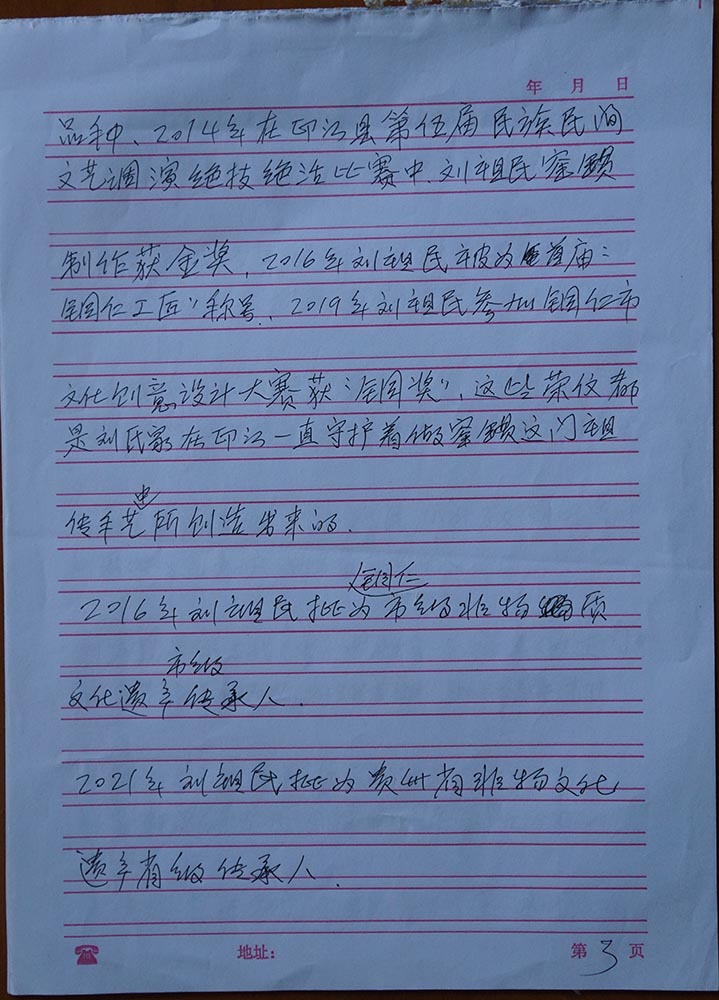 年 月 日
品种、2014年在印江县第伍届民族民间
文艺调演绝技绝活比赛中、刘祖民蜜赜
制作获金奖、2016年刘祖民被为首届“
铜仁工匠”称号、2019年刘祖民参加铜仁市
文化创意设计大赛获“铜奖”、这些荣仪都
是刘氏家在印江一直守护着做蜜赜这门祖
中
传手艺所创造出来的.
铜仁
2016年刘祖民批为市级非物质
市级
文化遗产传承人.
2021年刘祖民批为贵州省非物文化
遗产省级传承人.
地址: 第 3 页